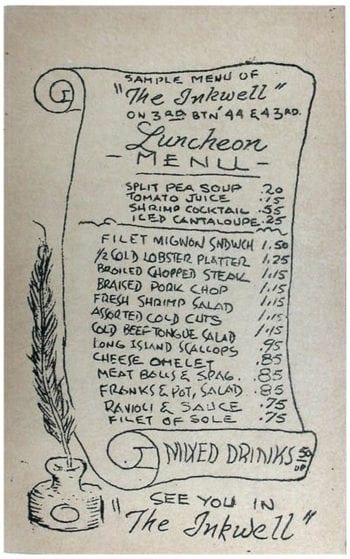 SAMPLE MENU OF
"The Inkwell"
ON 3RD BTN '44 & 43RD.
Luncheon
- MENU -
SPLIT PEA SOUP .20
TOMATO JUICE .15
SHRIMP COCKTAIL .55
ICED CANTALOUPE .25
FILET MIGNON SNDWCH 1.50
1/2 COLD LOBSTER PLATTER 1.25
BROILED CHOPPED STEAK 1.15
BRAISED PORK CHOP 1.15
FRESH SHRIMP SALAD 1.15
ASSORTED COLD CUTS 1.15
COLD BEEF TONGUE SALAD 1.15
LONG ISLAND SCALLOPS .95
CHEESE OMELET .85
MEAT BALLS & SPAG. .85
FRANKS & POT. SALAD .85
RAVIOLI & SAUCE .75
FILET OF SOLE .75
MIXED DRINKS 50 UP
SEE YOU IN
"The Inkwell"